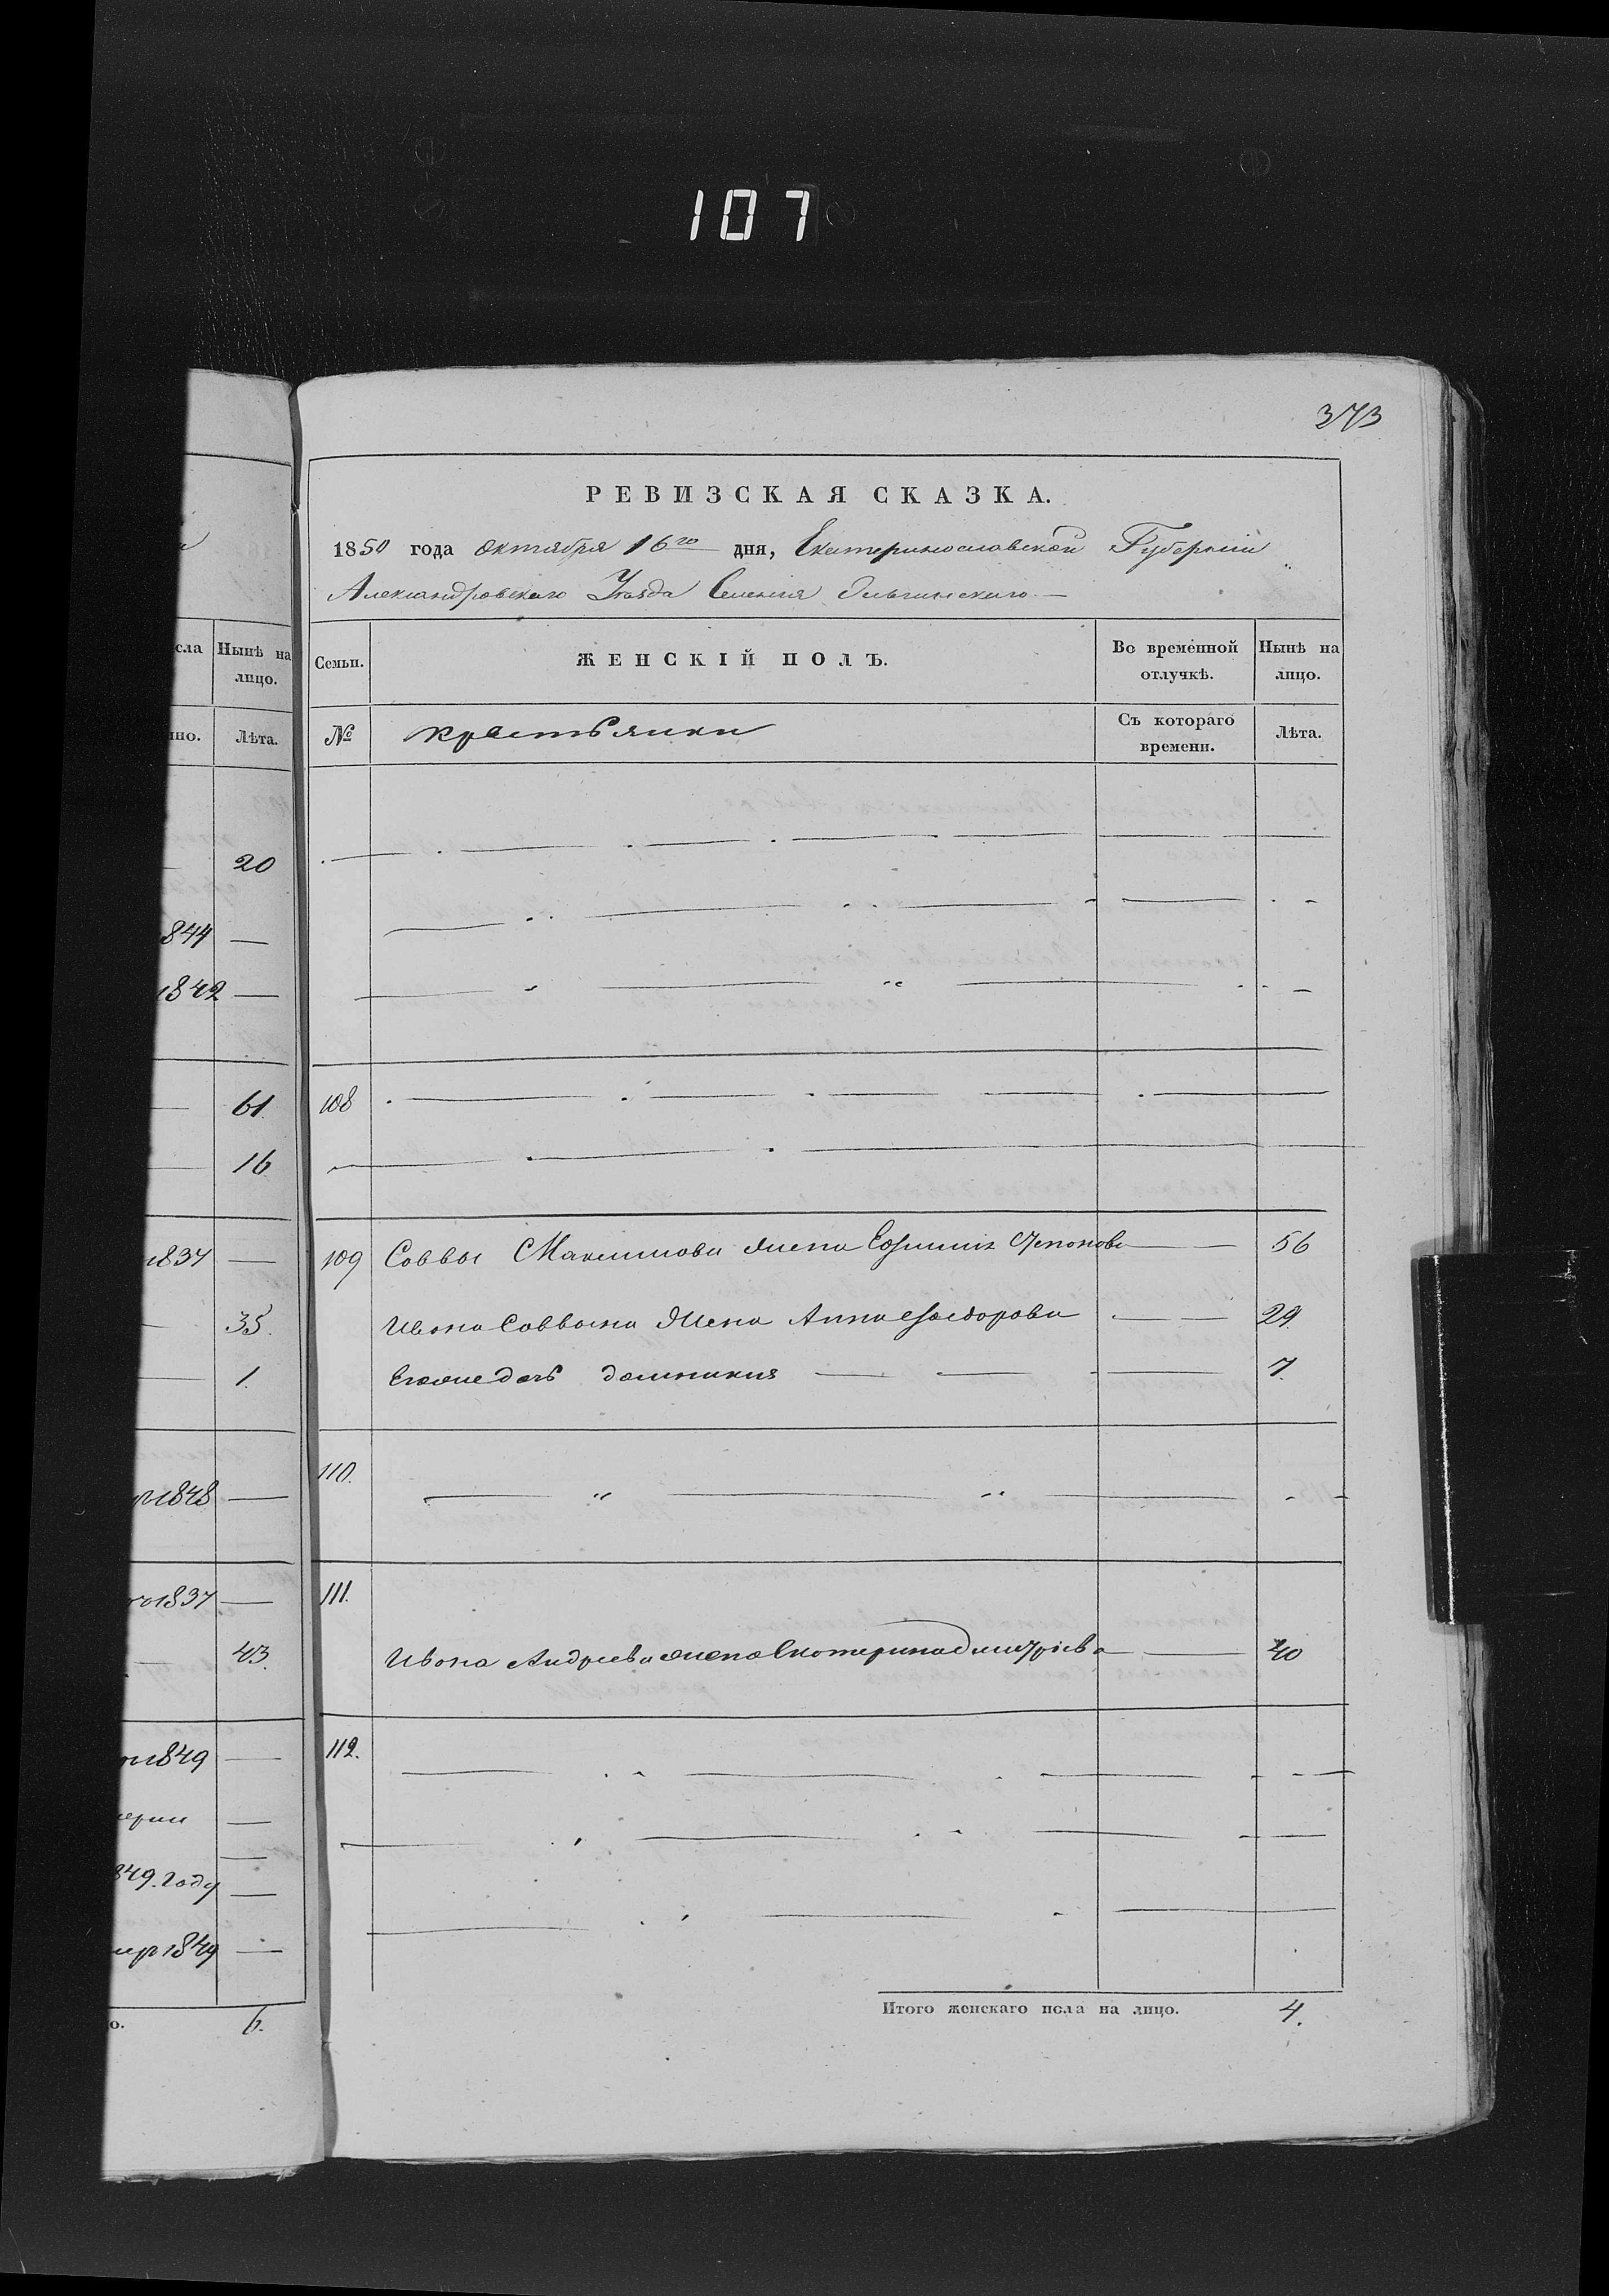 107
373
РЕВИЗСКАЯ СКАЗКА.
1850 года Октября 16го дня, Екатеринославской Губернии
Александровского Уезда Селения
сла
Нынѣ на лицо.
Семьи.
ЖЕНСКІЙ ПОЛЪ.
Во временной отлучкѣ.
Нынѣ на лицо.
но.
Лѣта.
№
крестьянки
Съ котораго времени.
Лѣта.
20
844 —
1842 —
61. 108
16
1837 — 109 Саввы Максимова жена 56
35. Ивана Саввина жена Анна Федорова 29.
1. Его же дочь Домникия 7.
1848 — 110.
1837 — 111.
43. Ивана Андреева жена Екатерина Дмитріева 40
1849 — 112.
849. Году —
1849 —
о. 6.
Итого женскаго пола на лицо. 4.